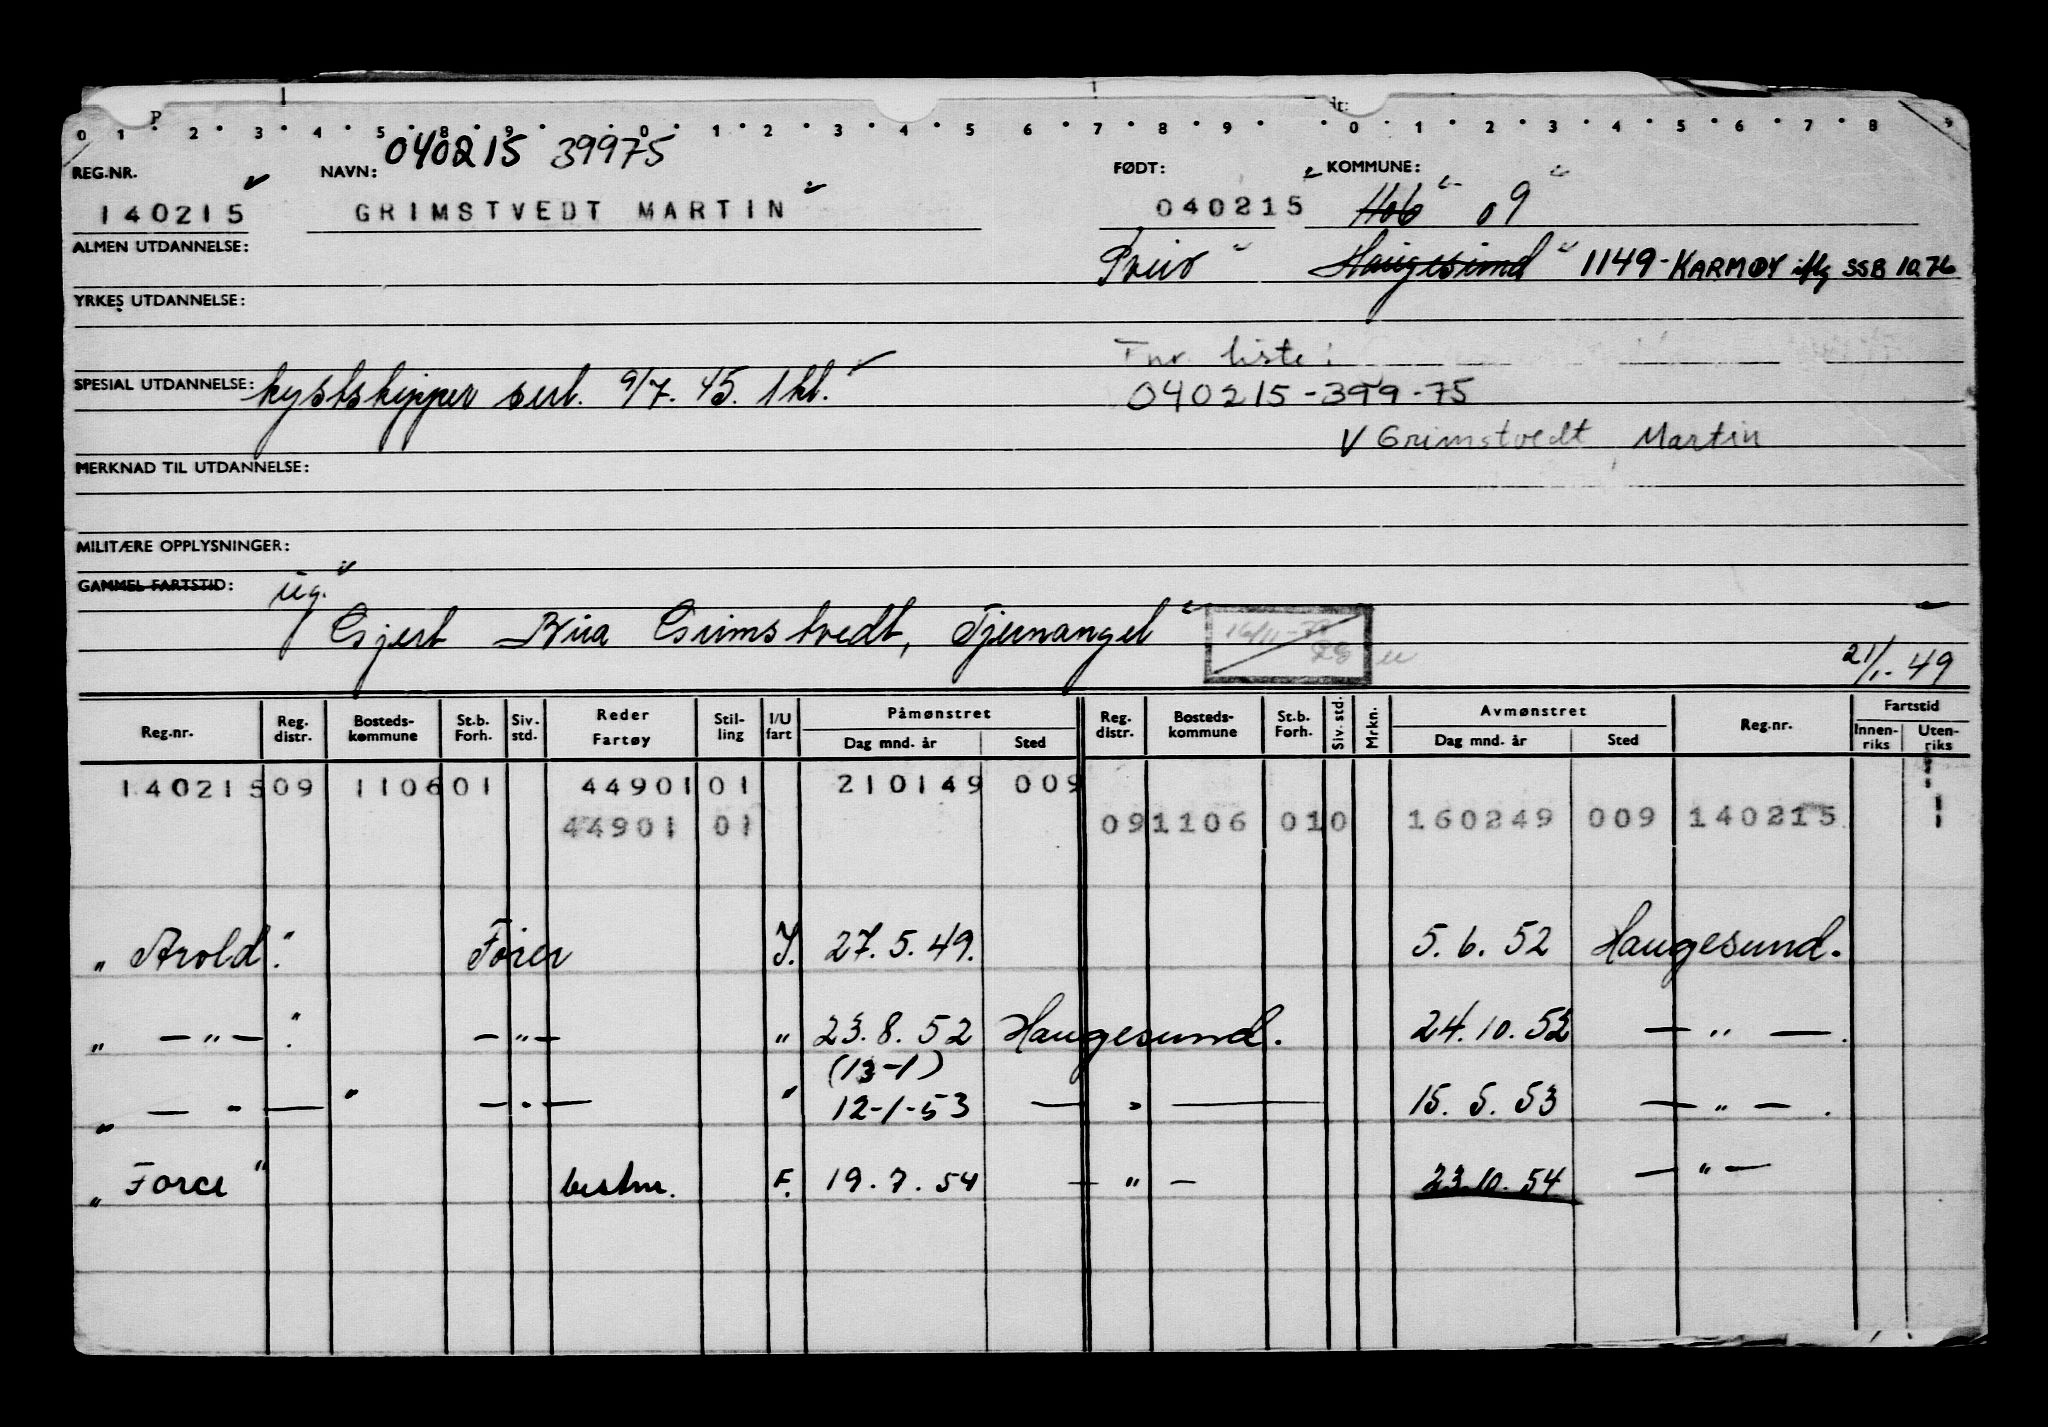 0 1 P 2 3 4 5 8 9 0 1 2 3 4 5 6 7 8 9 0 1 2 3 4 5 6 7 8 9
040215 39975
REG.NR. NAVN: FØDT: KOMMUNE:
140215 GRIMSTVEDT MARTIN 040215 Hob 09
ALMEN UTDANNELSE: Haugesund 1149-KARMØY iflg SSB 1076
YRKES UTDANNELSE:
Fnr liste:
SPESIAL UTDANNELSE: kystskipper sert. 9/7. 45. 1 kl. 040215-399-75
V Grimstvedt Martin
MERKNAD TIL UTDANNELSE:
MILITÆRE OPPLYSNINGER:
GAMMEL FARTSTID: ug.
Gjert Grimstvedt, Tjernangel
21/1.-49
Reg.nr. Reg. distr. Bosteds-kommune St.b. Forh. Siv.-std. Reder Fartøy Stil-ling I/U fart Påmønstret Dag mnd. år Sted Reg. distr. Bosteds-kommune St.b. Forh. Siv. std. Mrkn. Avmønstret Dag mnd. år Sted Reg.nr. Fartstid Innen-riks Uten-riks
140215 09 1106 01 44901 01 210149 009
44901 01 09 1106 01 0 160249 009 140215
"Arold". Fører I. 27.5.49. 5.6.52 Haugesund.
" — " — ". — " — " 23.8.52 Haugesund. 24.10.52 — " — .
(13-1)
" — " — " — " — " 12-1-53 — " — 15.5.53 — " — .
"Force" bestm. F. 19.7.54 — " — 23.10.54 — " —